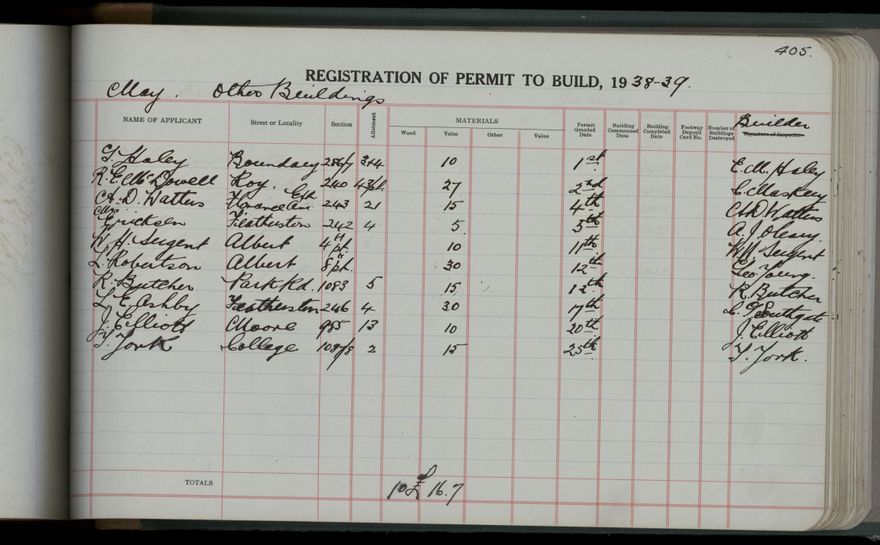 405.
REGISTRATION OF PERMIT TO BUILD, 1938-39.
May. Other Buildings
NAME OF APPLICANT Street or Locality Section Allotment MATERIALS Permit Granted Date Building Commenced Date Building Completed Date Footway Deposit Card No. Number of Buildings Destroyed Builder Signature of Inspector
Wood Value Other Value
T. Haley Boundary 286/7 3+4 10 1st E. M. Haley
R. E. McDowell Roy. 240 27 2nd C. Maskery
C. H. D. Watters 243 21 15 4th C. H. D. Watters
Mrs Ericksen Featherston 242 4 5 5th A. J. Oleary.
K. H. Sergent Albert 10 11th K. H. Sergent
L. Robertson Albert 30 12th Geo Young.
R. Butcher Park Rd. 1083 5 15 12th R. Butcher
L. E. Ashby Featherston 246 4 30 17th Southgate
J. Elliott Moore 955 13 10 20th J. Elliott
T. York College 2 15 25th T. York.
TOTALS 10 £ 167